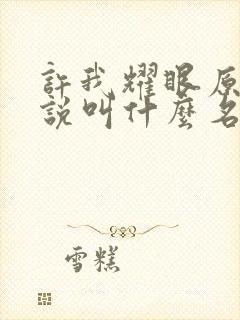 許我耀眼原
說叫什麼名
雪糕